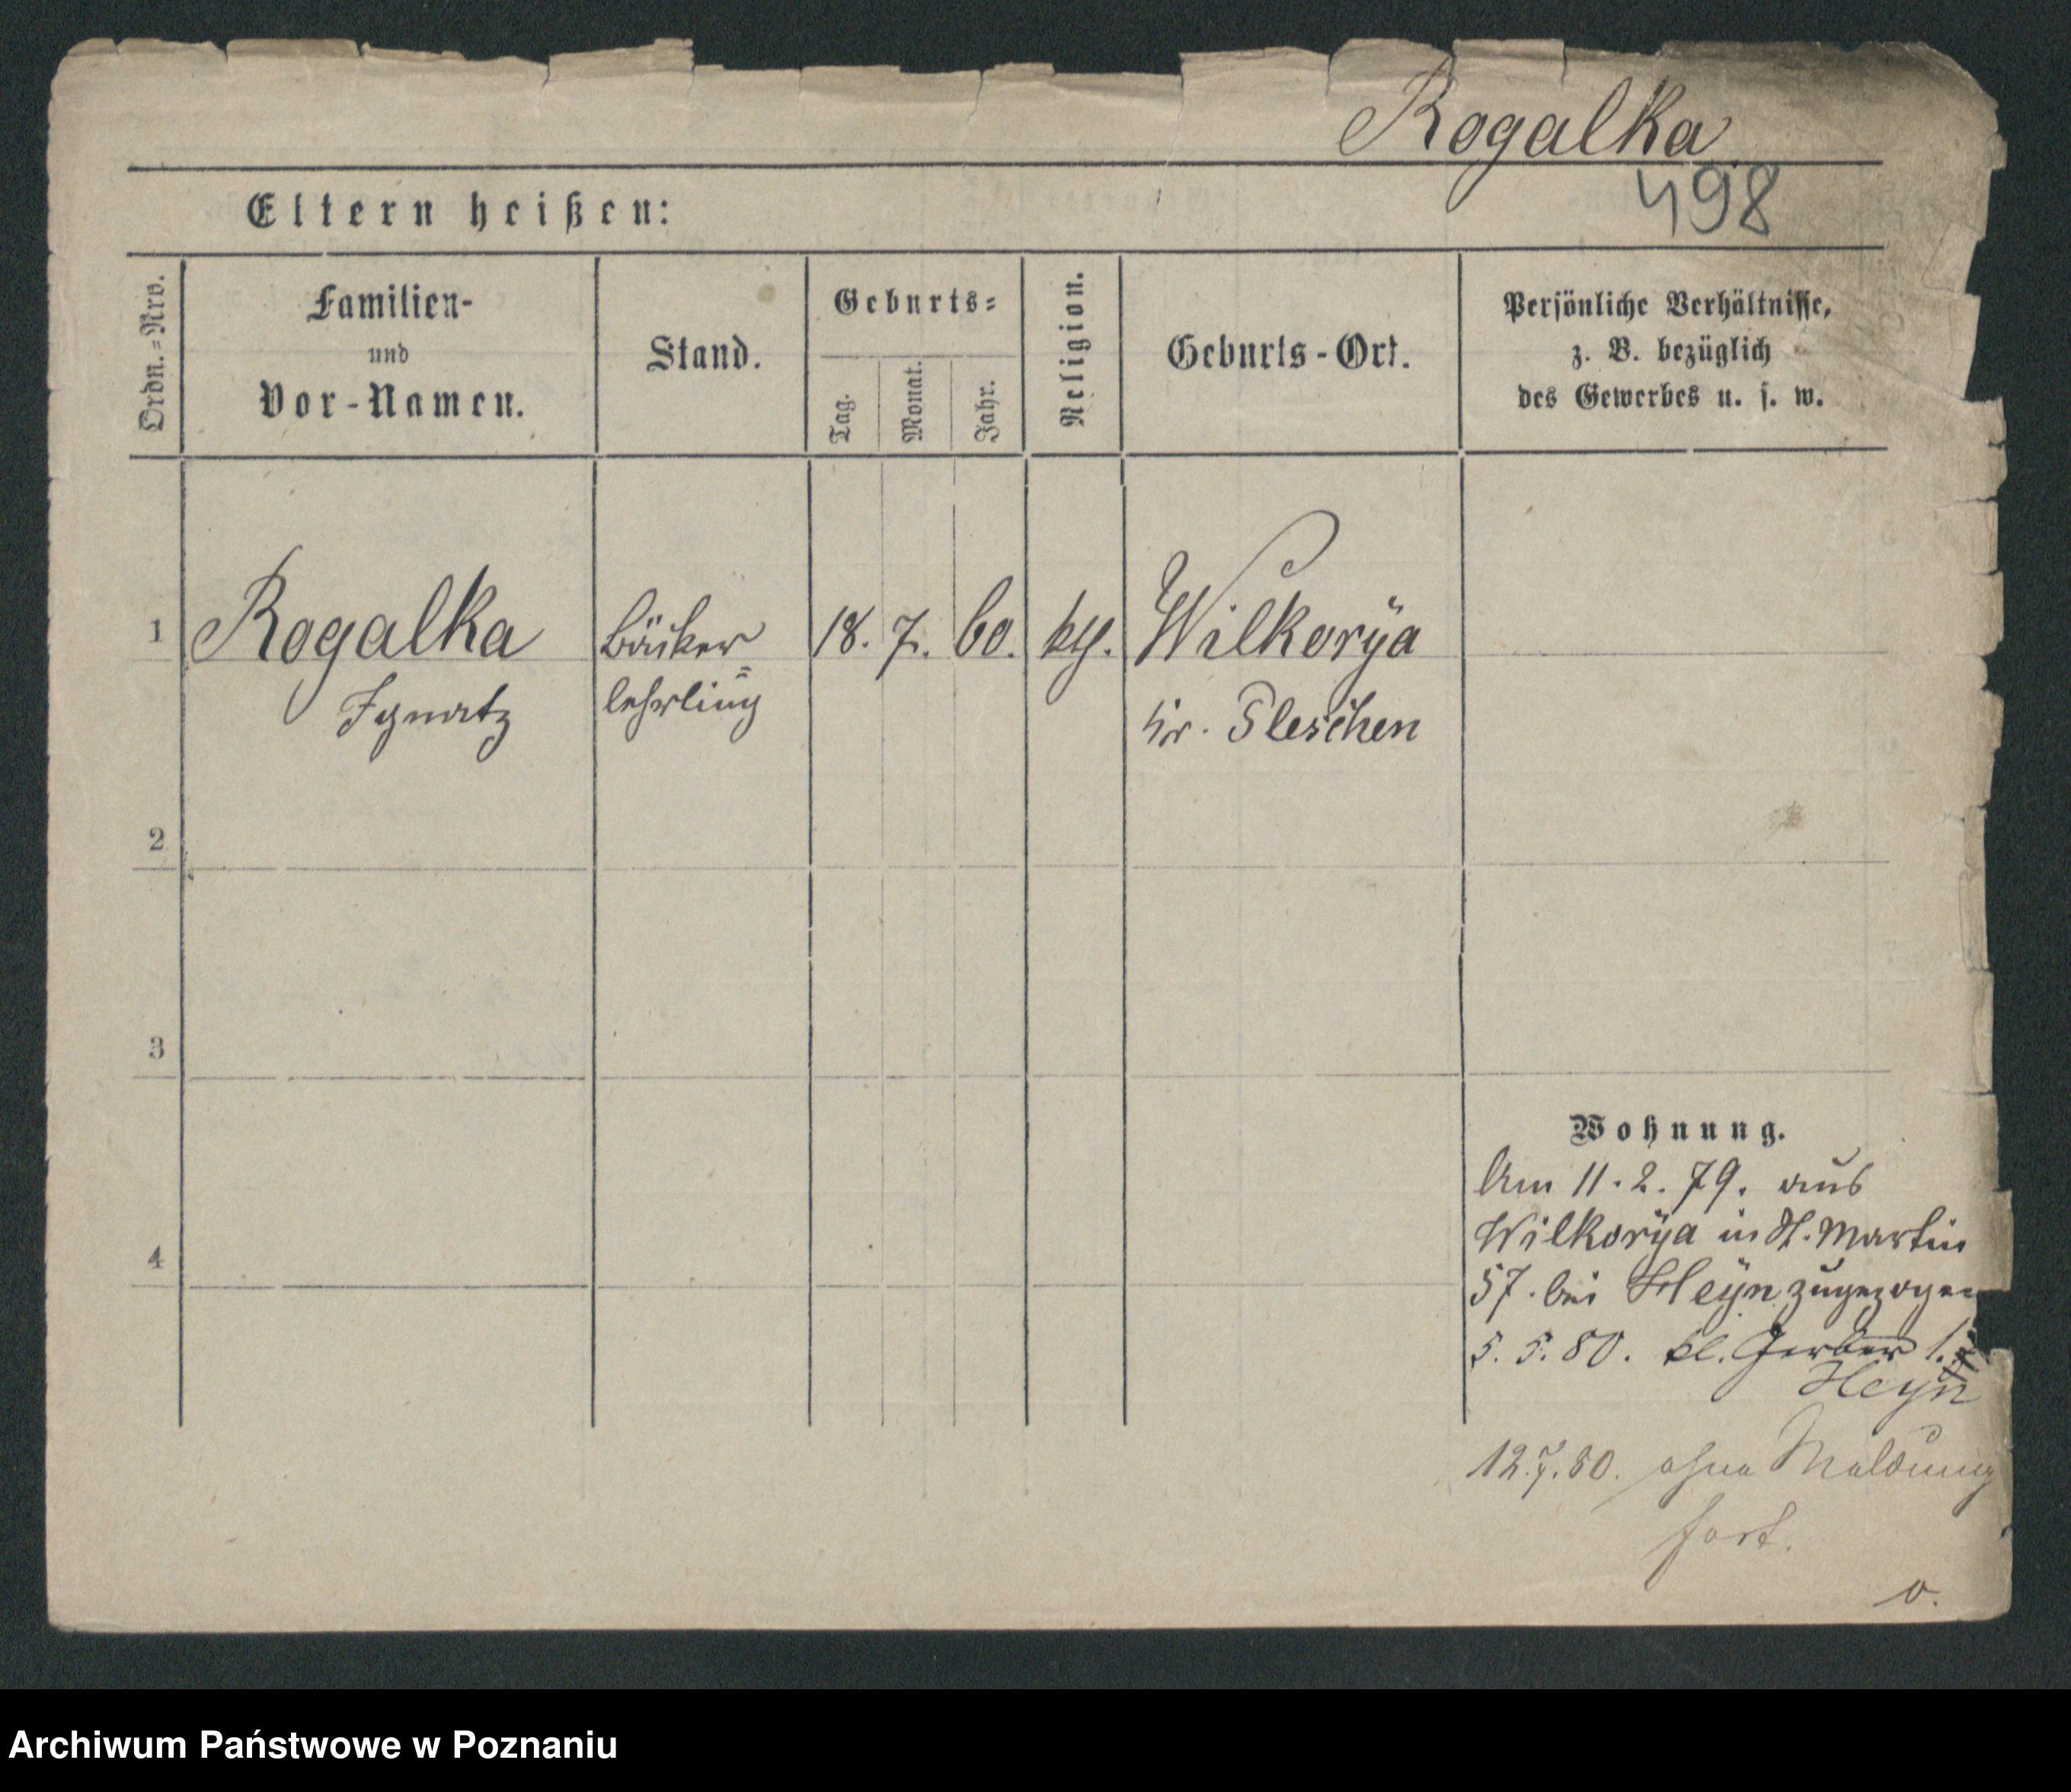 Rogalka
498
Eltern heißen:
Ordn.=Nro.
Familien-
und
Vor-Namen.
Stand.
Geburts=
Tag.
Monat.
Jahr.
Religion.
Geburts-Ort.
Persönliche Verhältnisse,
z. B. bezüglich
des Gewerbes u. s. w.
1 Rogalka Bäcker 18. 7. 60. kg. Wilkorÿa
Ignatz =lehrling Kr. Pleschen
2
3
4
Wohnung.
Am 11.2.79. aus
Wilkorÿa in St. Martin
57. bei Heÿn zugezogen
5.5.80. kl. Gerber 1.
Heÿn
12.7.80. ohne Meldung
fort.